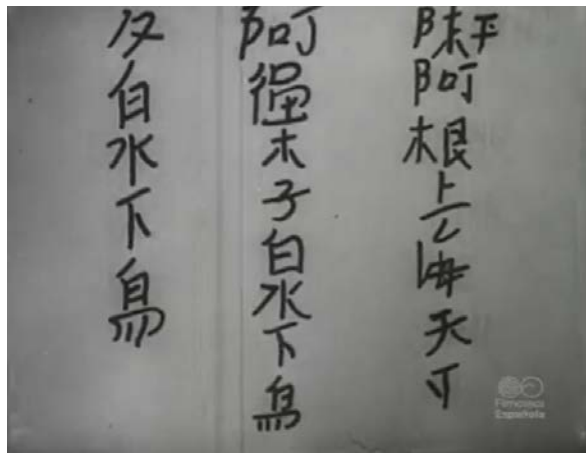 阿根上海天寸
阿木子白水下鳥
夕白水下鳥
Filmoteca
Española